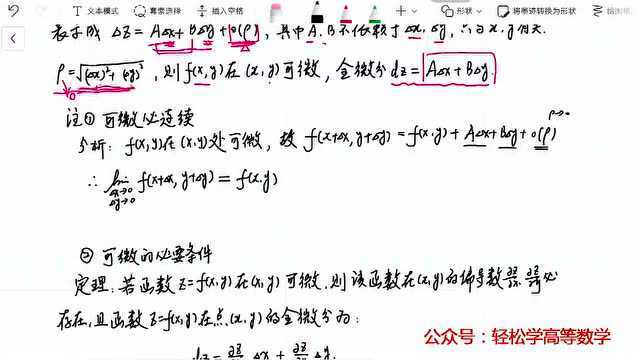 套索选择 插入空格 形状 将墨迹转换为形状
表示成 Δz = AΔx + BΔy + o(ρ), 其中 A, B 不依赖于 Δx, Δy, 只与 x, y 有关.
ρ = √((Δx)² + (Δy)²), 则 f(x,y) 在 (x,y) 可微, 全微分 dz = AΔx + BΔy.
ρ→0
注① 可微必连续
分析: f(x,y)在(x,y)处可微, 故 f(x+Δx, y+Δy) = f(x,y) + AΔx + BΔy + o(ρ)
∴ lim Δx→0 Δy→0 f(x+Δx, y+Δy) = f(x,y)
② 可微的必要条件
定理: 若函数 z=f(x,y)在(x,y)可微, 则该函数在(x,y)的偏导数 ∂z/∂x, ∂z/∂y 必
存在, 且函数 z=f(x,y)在点(x,y)的全微分为:
dz = ∂z/∂x Δx + ∂z/∂y Δy.
公众号：轻松学高等数学